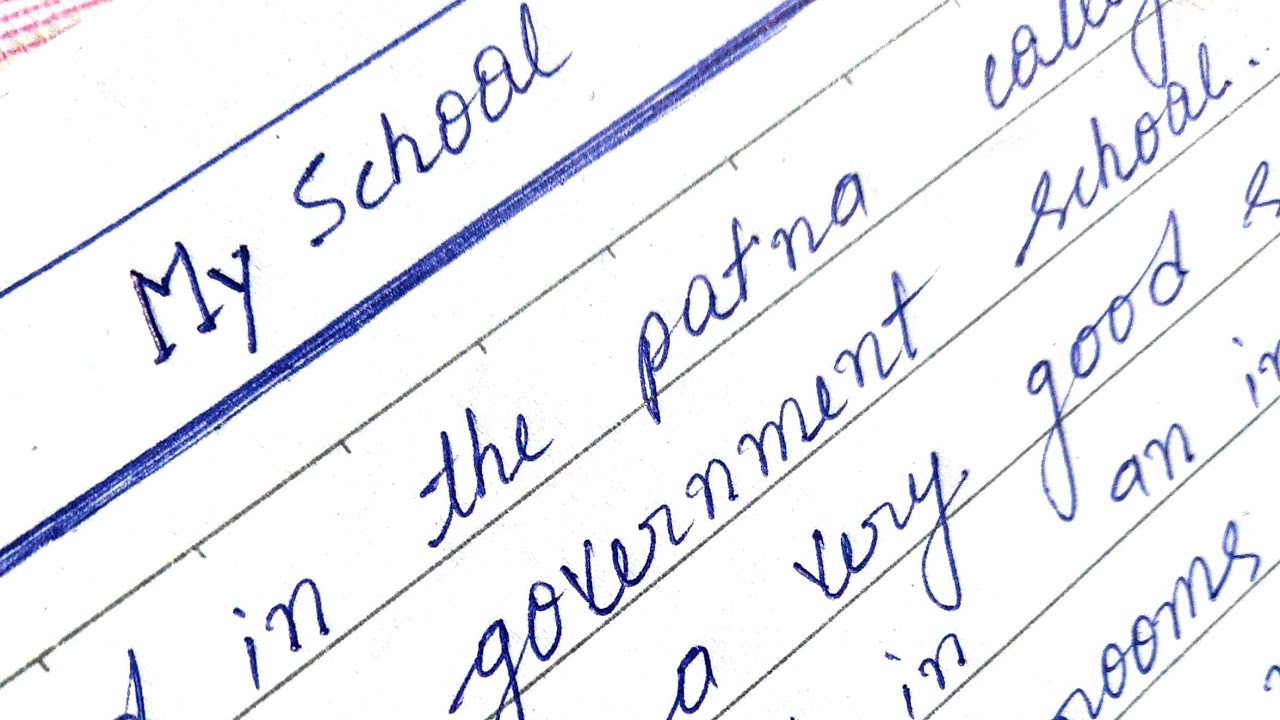 My School
in the patna
government school.
a very good
in an
rooms